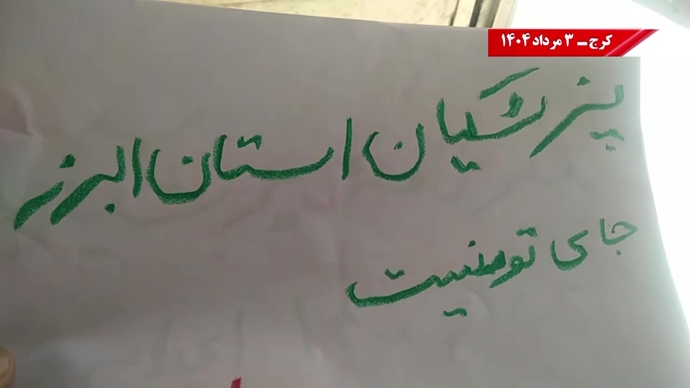 کرج ـ ۳ مرداد ۱۴۰۴
پزشکیان استان البرز
جای تو نیست